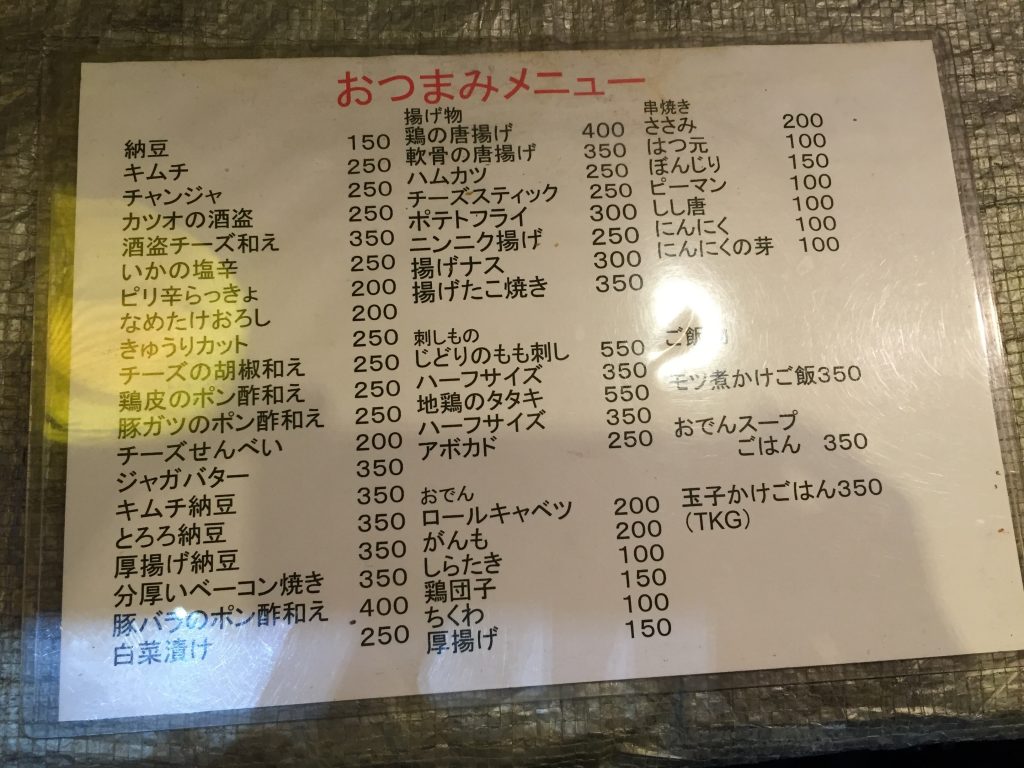 おつまみメニュー
納豆 150
キムチ 250
チャンジャ 250
カツオの酒盗 250
酒盗チーズ和え 350
いかの塩辛 250
ピリ辛らっきょ 200
なめたけおろし 200
きゅうりカット 250
チーズの胡椒和え 250
鶏皮のポン酢和え 250
豚ガツのポン酢和え 250
チーズせんべい 200
ジャガバター 350
キムチ納豆 350
とろろ納豆 350
厚揚げ納豆 350
分厚いベーコン焼き 350
豚バラのポン酢和え 400
白菜漬け 250
揚げ物
鶏の唐揚げ 400
軟骨の唐揚げ 350
ハムカツ 250
チーズスティック 250
ポテトフライ 300
ニンニク揚げ 250
揚げナス 300
揚げたこ焼き 350
刺しもの
じどりのもも刺し 550
ハーフサイズ 350
地鶏のタタキ 550
ハーフサイズ 350
アボカド 250
おでん
ロールキャベツ 200
がんも 200
しらたき 100
鶏団子 150
ちくわ 100
厚揚げ 150
串焼き
ささみ 200
はつ元 100
ぼんじり 150
ピーマン 100
しし唐 100
にんにく 100
にんにくの芽 100
ご飯
モツ煮かけご飯350
おでんスープ
ごはん 350
玉子かけごはん350
(TKG)